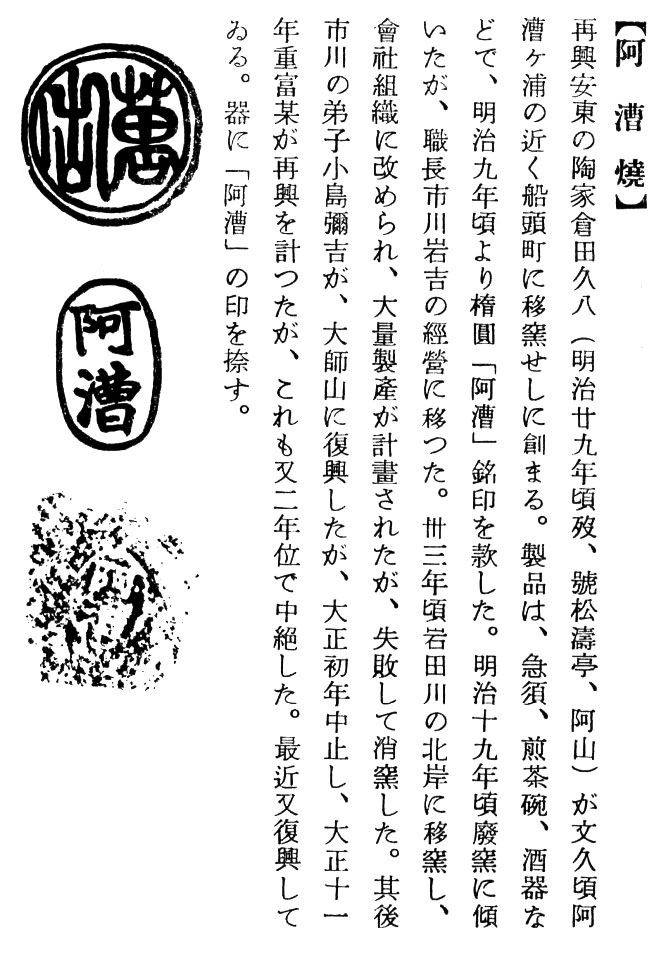 【阿漕燒】
再興安東の陶家倉田久八（明治廿九年頃歿、號松濤亭、阿山）が文久頃阿
漕ヶ浦の近く船頭町に移窯せしに創まる。製品は、急須、煎茶碗、酒器な
どで、明治九年頃より楕圓「阿漕」銘印を款した。明治十九年頃廢窯に傾
いたが、職長市川岩吉の經營に移つた。卅三年頃岩田川の北岸に移窯し、
會社組織に改められ、大量製產が計畫されたが、失敗して消窯した。其後
市川の弟子小島彌吉が、大師山に復興したが、大正初年中止し、大正十一
年重富某が再興を計つたが、これも又二年位で中絕した。最近又復興して
ゐる。器に「阿漕」の印を捺す。
萬古
阿漕